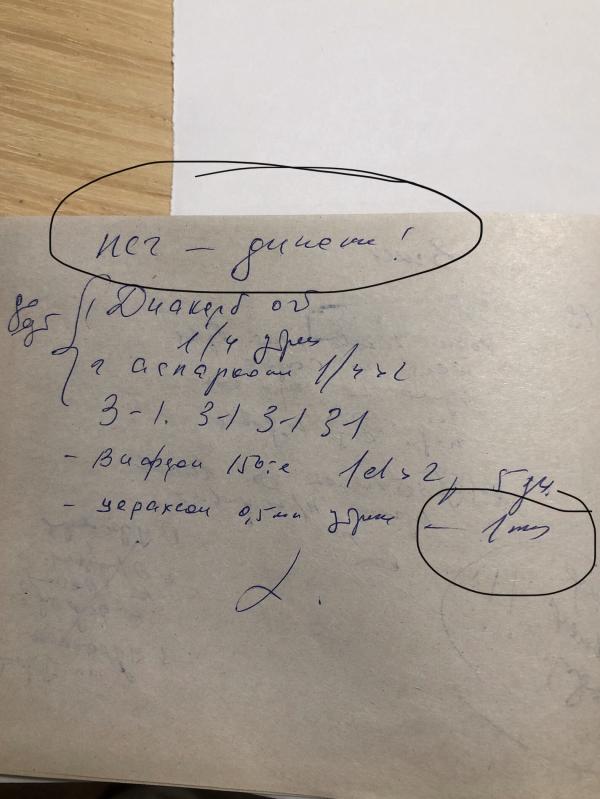 НСГ – динам!
1 Диакарб 0,25
1/4 утром
2 аспаркам 1/4 х 2
3-1. 3-1 3-1 3-1
- Виферон 150т.е 1с1 х 2, 5 дн.
- цераксон 0,5 мл утром – 1 мес